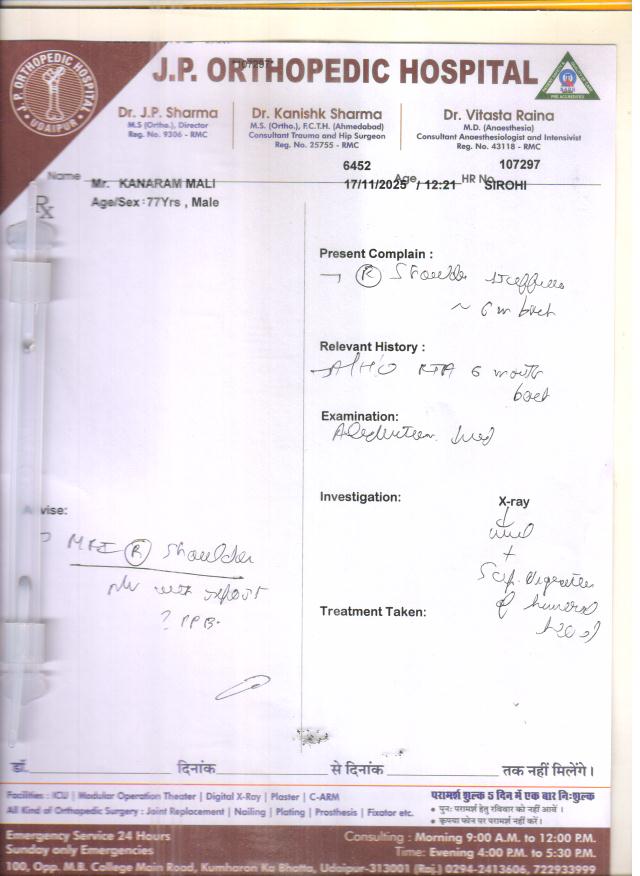 J.P. ORTHOPEDIC HOSPITAL
UDAIPUR
107297
J.P. ORTHOPEDIC HOSPITAL
Dr. J.P. Sharma
M.S (Ortho.), Director
Reg. No. 9306 - RMC
Dr. Kanishk Sharma
M.S. (Ortho.), F.C.T.H. (Ahmedabad)
Consultant Trauma and Hip Surgeon
Reg. No. 25755 - RMC
Dr. Vitasta Raina
M.D. (Anaesthesia)
Consultant Anaesthesiologist and Intensivist
Reg. No. 43118 - RMC
6452 107297
Name Mr. KANARAM MALI 17/11/2025 / 12:21 Age HR No. SIROHI
Rx Age/Sex : 77Yrs , Male
Present Complain :
R Shoulder stiffness
~ 6 m back
Relevant History :
A/H/O RTA 6 month
back
Examination:
Abduction
Investigation: X-ray
+
Sup. migration
of humeral
head
Treatment Taken:
vise:
MRI R Shoulder
with report
?
डॉ. दिनांक से दिनांक तक नहीं मिलेंगे।
Facilities : ICU | Modular Operation Theater | Digital X-Ray | Plaster | C-ARM
All Kind of Orthopedic Surgery : Joint Replacement | Nailing | Plating | Prosthesis | Fixator etc.
परामर्श शुल्क 5 दिन में एक बार निःशुल्क
• पुनः परामर्श हेतु रविवार को नहीं आयें ।
• कृपया फोन पर परामर्श नहीं करें ।
Emergency Service 24 Hours
Sunday only Emergencies
Consulting : Morning 9:00 A.M. to 12:00 P.M.
Time: Evening 4:00 P.M. to 5:30 P.M.
100, Opp. M.B. College Main Road, Kumharon Ka Bhatta, Udaipur-313001 (Raj.) 0294-2413606, 722933999